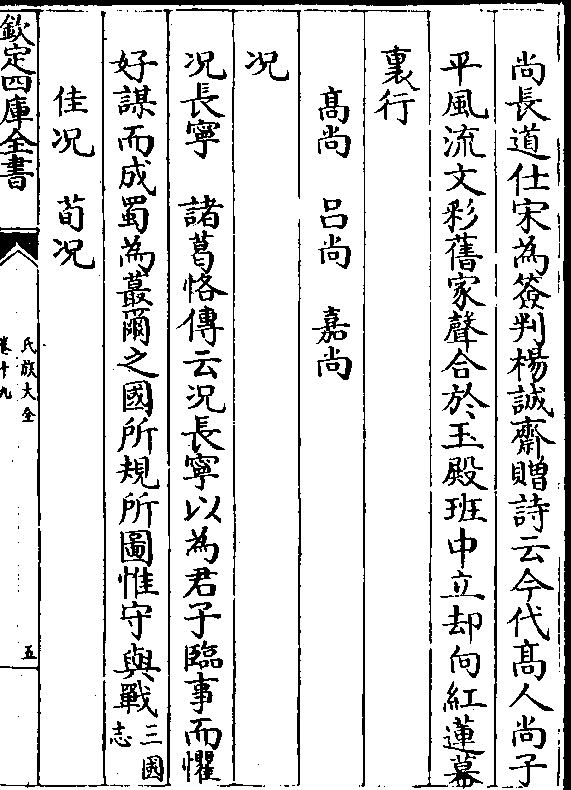 尚長道仕宋為簽判楊誠齋贈詩云今代髙人尚子
平風流文彩舊家聲合於玉殿班中立却向紅蓮幕
裏行
髙尚　吕尚　嘉尚
况
况長寧　諸葛恪傳云况長寧以為君子臨事而懼
好謀而成蜀為蕞爾之國所規所圖惟守與戰三國
志
佳况　荀况
欽定四庫全書
氏族大全
卷十九
五